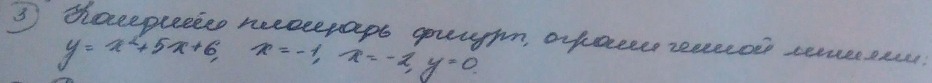 3) Найдите площадь фигуры, ограниченной линиями:
y = x²+5x+6, x=-1, x=-2, y=0.